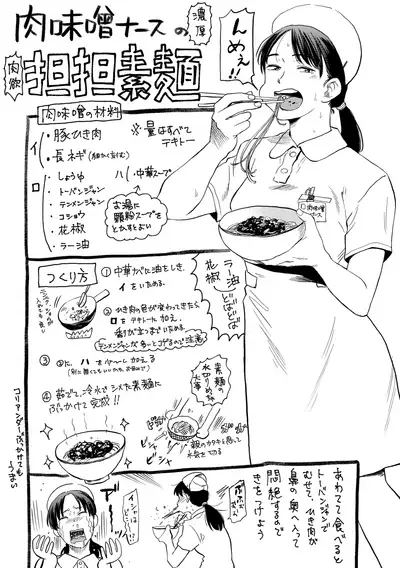 肉味噌ナースの
濃厚
肉欲
担担素麺
んめぇ!!
肉味噌の材料
イ
・豚ひき肉
・長ネギ(細かく刻む)
※量はすべて
テキトー
ロ
・しょうゆ
・トーバンジャン
・テンメンジャン
・コショウ
・花椒
・ラー油
ハ 中華スープ
お湯に
顆粒スープを
とかすとよい
肉味噌
ナース
ラー油
花椒
どばどば
つくり方
① 中華ナベに油をしき、
イをいためる。
② ひき肉の色が変わってきたら
ロをテキトーに加え、
香りが立つまでいためる。
テンメンジャンが多いとコゲるので注意
③ ②にハを加える
④ 茹でて、冷水でシメた素麺に
ぶっかけて完成!!
素麺の
水切りめちゃ
大事
親のカタキと思って
水気を切る
ビシャ
ビシャ
コリアンダーぶっかけても
うまい
あわてて食べると
トーバンジャンで
むせて、ひき肉が
鼻の奥へ入って
悶絶するので
きをつけよう